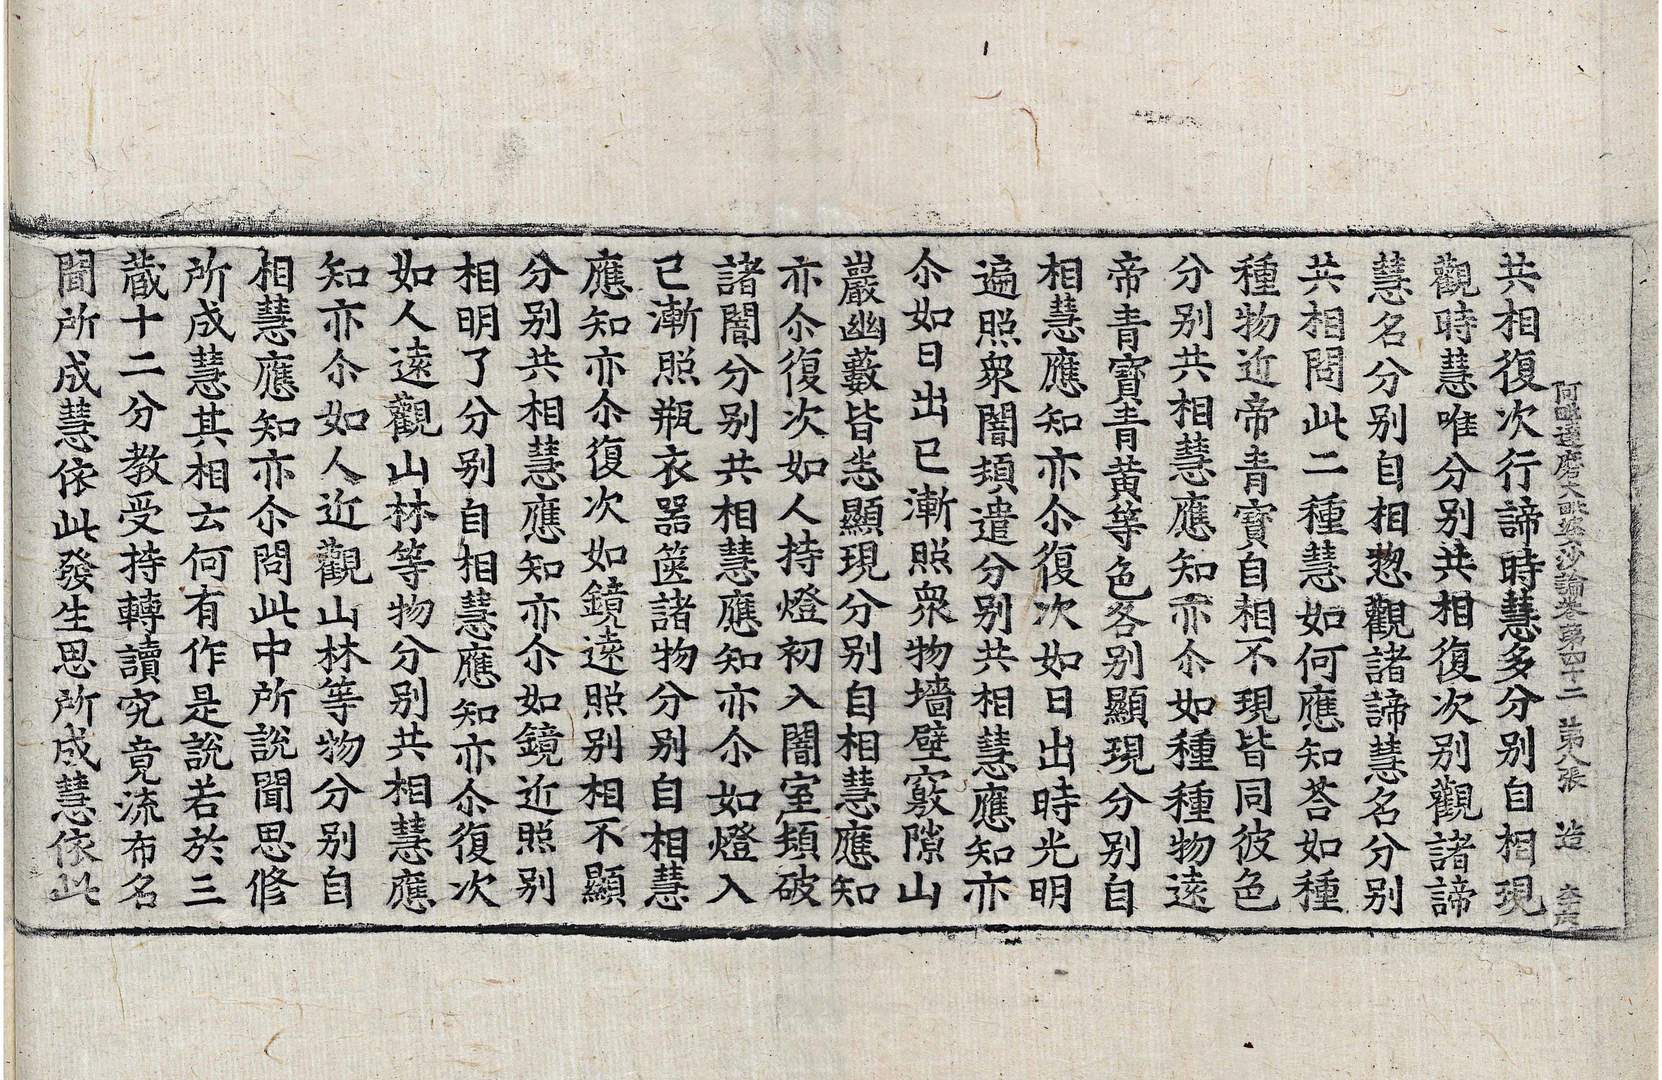 阿毗達磨大毗婆沙論卷第四十二 第八張 造
共相復次行諦時慧多分別自相現
觀時慧唯分別共相復次別觀諸諦
慧名分別自相惣觀諸諦慧名分別
共相問此二種慧如何應知荅如種
種物近帝青寶自相不現皆同彼色
分別共相慧應知亦尒如種種物遠
帝青寶青黃等色各別顯現分別自
相慧應知亦尒復次如日出時光明
遍照衆闇頓遣分別共相慧應知亦
尒如日出已漸照衆物墻壁竅隙山
巖幽藪皆悉顯現分別自相慧應知
亦尒復次如人持燈初入闇室頓破
諸闇分別共相慧應知亦尒如燈入
已漸照瓶衣器篋諸物分別自相慧
應知亦尒復次如鏡遠照別相不顯
分別共相慧應知亦尒如鏡近照別
相明了分別自相慧應知亦尒復次
如人遠觀山林等物分別共相慧應
知亦尒如人近觀山林等物分別自
相慧應知亦尒問此中所說聞思修
所成慧其相云何有作是說若於三
藏十二分教受持轉讀究竟流布名
聞所成慧依此發生思所成慧依此